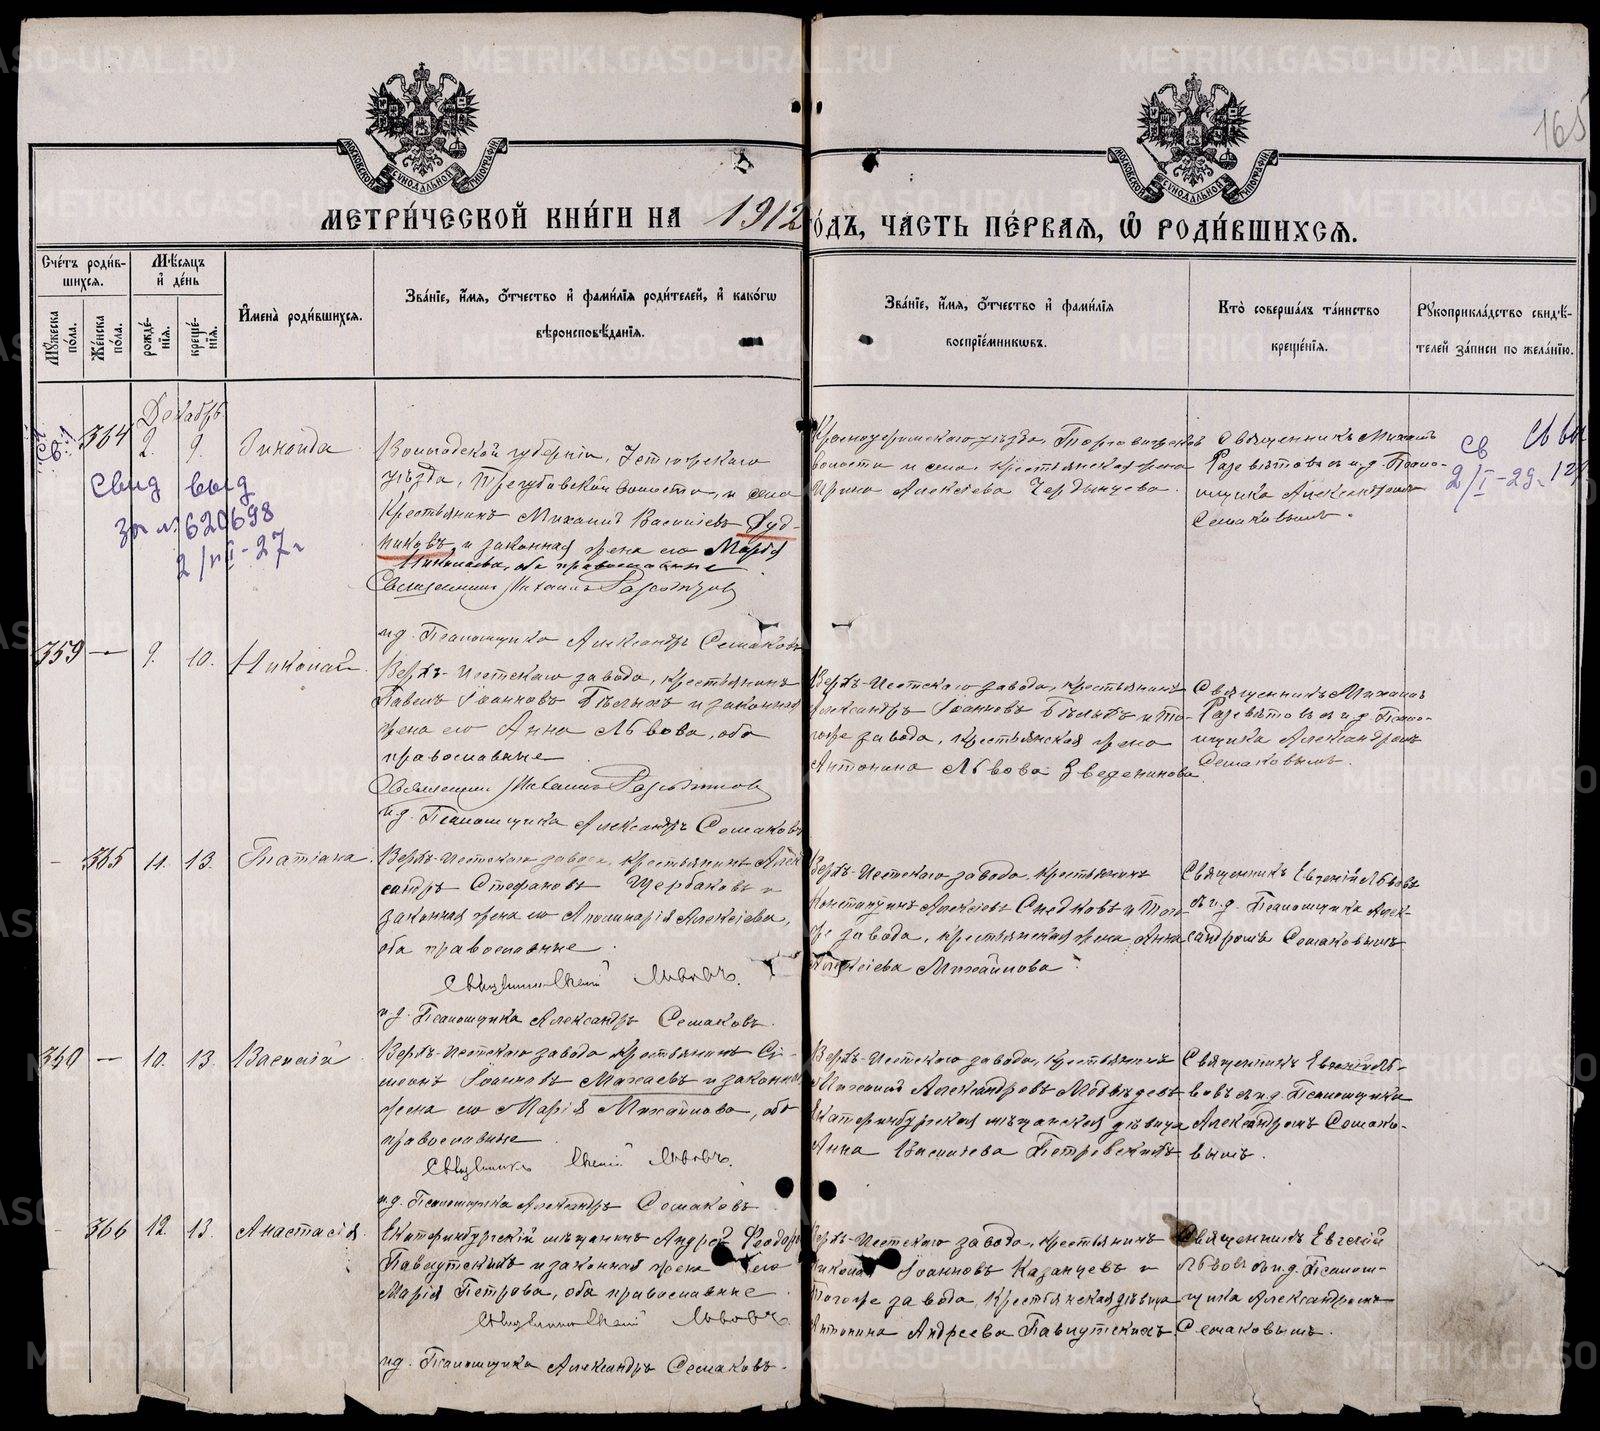 165
МОСКОВСКОЙ СѴНОДАЛЬНОЙ ТИПОГРАФІИ
МОСКОВСКОЙ СѴНОДАЛЬНОЙ ТИПОГРАФІИ
МЕТРИ́ЧЕСКОЙ КНИ́ГИ НА 1912 го́дъ, ЧА́СТЬ ПЕ́РВАЯ, Ѡ РОДИ́ВШИХСЯ.
Сче́тъ роди́вшихся.
Мꙋжеска по́ла.
Же́нска по́ла.
Мѣ́сяцъ и де́нь
рожде́нїя.
креще́нїя.
Имена̀ роди́вшихся.
Зва́нїе, и́мя, о́тчество и фами́лїя роди́телей, и како́гѡ
вѣроисповѣ́данїя.
Зва́нїе, и́мя, о́тчество и фами́лїя
воспрїе́мникѡвъ.
Кто̀ соверша́лъ та́инство
креще́нїя.
Рꙋкоприкла́дство свидѣ́-
телей за́писи по жела́нїю.
Декабрь
364 2. 9. Зинаида
Вологодской губерніи, Устюжскаго
уѣзда, волости, и села
Крестьянинъ Михаилъ Васильевъ Руд-
никовъ, и законная жена его Марія
Николаева, оба православные
Священникъ Михаилъ
и.д. Псаломщика Александръ Семаковъ
Красноуфимскаго уѣзда,
волости и села, крестьянская жена
Ирина Алексіева Чердынцева.
Священникъ Михаилъ
и.д. Псалом-
щика Александромъ
Семаковымъ.
св
2/I-29.
свид выд
за № 620698
27 г
359 — 9. 10. Николай
Верхъ-Исетскаго завода, крестьянинъ
Павелъ Іоанновъ Бѣлыхъ и законная
жена его Анна Львова, оба
православные
Священникъ Михаилъ
и.д. Псаломщика Александръ Семаковъ
Верхъ-Исетскаго завода, крестьянинъ
Александръ Іоанновъ Бѣлыхъ и то-
гоже завода, крестьянская жена
Антонина Львова Зведенинова.
Священникъ Михаилъ
и.д. Псалом-
щика Александромъ
Семаковымъ.
365 11. 13. Татіана
Верхъ-Исетскаго завода, крестьянинъ Алек-
сандръ Стефановъ Щербаковъ и
законная жена его Апполинарія Алексіева,
оба православные
Священникъ Евгеній Львовъ.
и.д. Псаломщика Александръ Семаковъ.
Верхъ-Исетскаго завода, крестьянинъ
Константинъ Алексіевъ Снедковъ и того
же завода, крестьянская жена Анна
Алексіева Михайлова.
Священникъ Евгеній Львовъ
съ и.д. Псаломщика Алек-
сандромъ Семаковымъ
360 — 10. 13. Василій
Верхъ-Исетскаго завода крестьянинъ Си-
меонъ Іоанновъ Махаевъ и законная
жена его Марія Михайлова, оба
православные
Священникъ Евгеній Львовъ.
и.д. Псаломщика Александръ Семаковъ.
Верхъ-Исетскаго завода, крестьянинъ
Михаилъ Александровъ Медвѣдевъ
Екатеринбургская мѣщанская дѣвица
Анна Васильева Петровскихъ
Священникъ Евгеній Ль-
вовъ съ и.д. Псаломщика
Александромъ Семако-
вымъ.
366 12. 13. Анастасія
Екатеринбургскій мѣщанинъ Андрей Феодоровъ
Павлутскихъ и законная жена его
Марія Петрова, оба православные
Священникъ Евгеній Львовъ.
и.д. Псаломщика Александръ Семаковъ.
Верхъ-Исетскаго завода, крестьянинъ
Николай Іоанновъ Казанцевъ и
тогоже завода, крестьянская дѣвица
Антонина Андреева Павлутскихъ
Священникъ Евгеній
Львовъ съ и.д. Псалом-
щика Александромъ
Семаковымъ.
METRIKI.GASO-URAL.RU